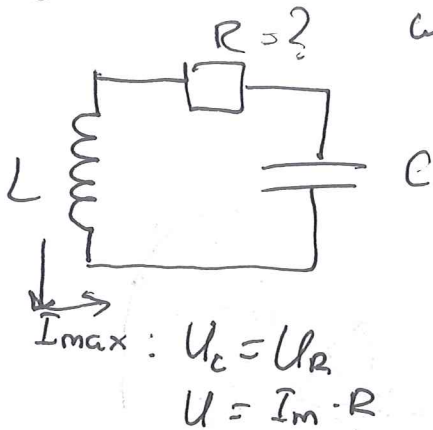 R = ?
L
C
Imax : Uc = UR
U = Im · R